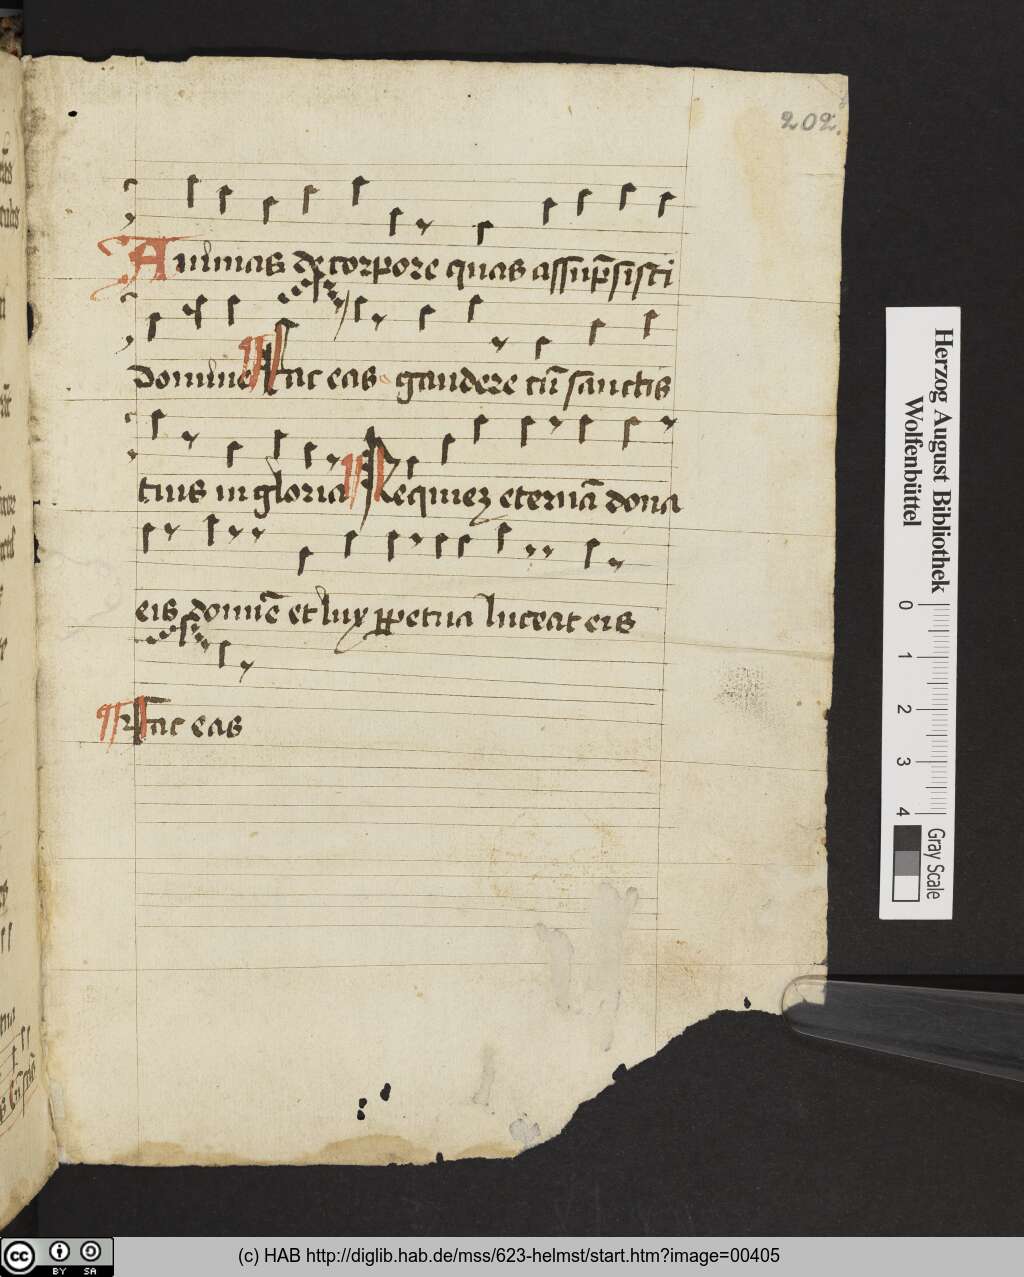 202.
Animas de corpore quas assūp̄sisti
domine Fac eas gaudere cū sanctis
tuis in gloria Requiez eternā dona
eis domiē et lux ꝑpetua luceat eis
Fac eas
Herzog August Bibliothek
Wolfenbüttel
0 1 2 3 4
Gray Scale
cc BY SA
(c) HAB http://diglib.hab.de/mss/623-helmst/start.htm?image=00405